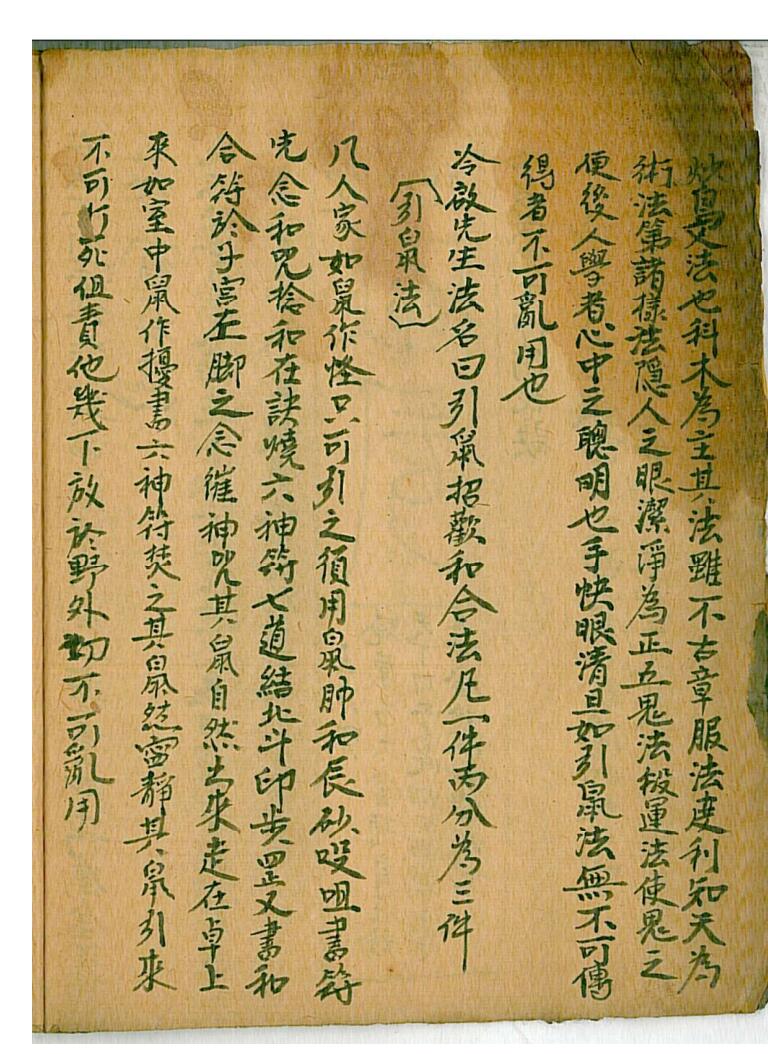 法也科木為主其法雖不古章服法度利知天為
術法第諸樣法隱人之眼潔淨為正五鬼法搬運法使鬼之
便後人學者心中之聰明也手快眼清且如引鼠法無不可傳
得者不可亂用也
冷啟先生法名曰引鼠招歡和合法凡一件丙分為三件
引鼠法
凡人家如鼠作怪只可引之須用鼠肺和辰砂咀書符
先念和咒捻和在訣燒六神符七道結北斗印步罡又書和
合符於子宮左脚之念催神咒其鼠自然出來走在卓上
來如室中鼠作擾書六神符焚之其鼠然寧靜其鼠引來
不可打死但責他幾下放於野外切不可亂用